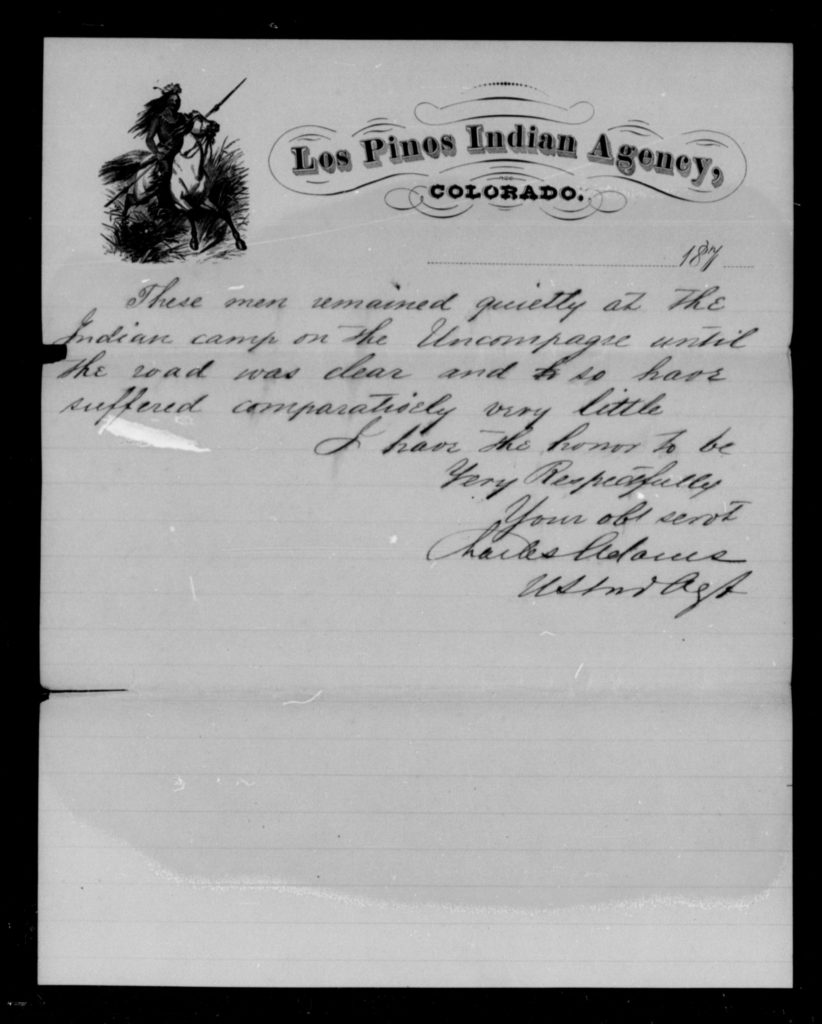 Los Pinos Indian Agency,
COLORADO.
187
These men remained quietly at the
Indian camp on the Uncompagre until
the road was clear and so have
suffered comparatively very little
I have the honor to be
Very Respectfully
Your obt servt
Charles Adams
US Ind Agt